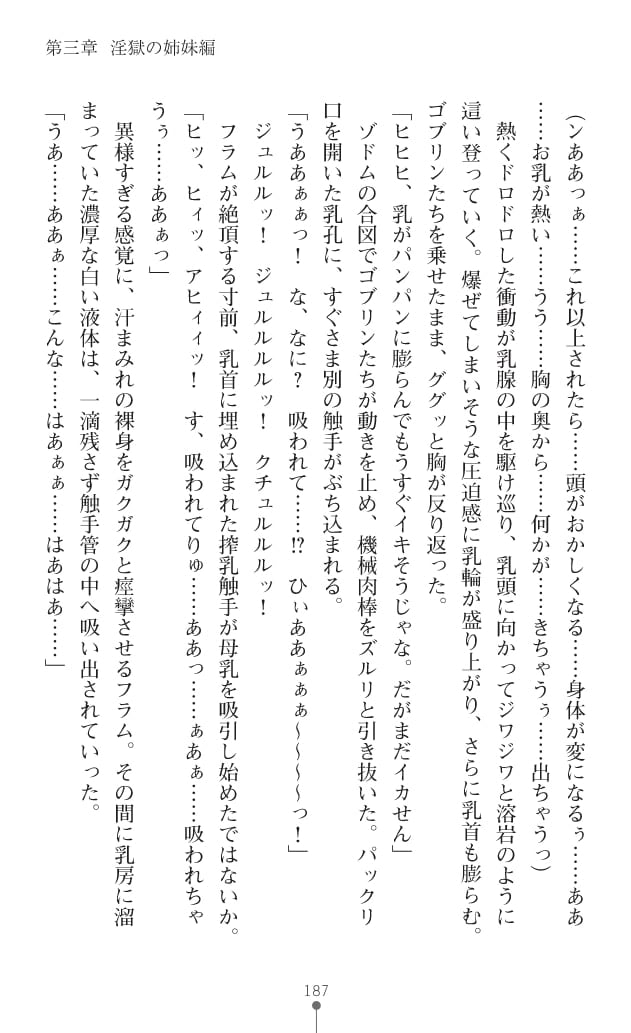 第三章　淫獄の姉妹編
（ンああっぁ……これ以上されたら……頭がおかしくなる……身体が変になるぅ……ああ
……お乳が熱い……うう……胸の奥から……何かが……きちゃうぅ……出ちゃうっ）
　熱くドロドロした衝動が乳腺の中を駆け巡り、乳頭に向かってジワジワと溶岩のように
這い登っていく。爆ぜてしまいそうな圧迫感に乳輪が盛り上がり、さらに乳首も膨らむ。
ゴブリンたちを乗せたまま、ググッと胸が反り返った。
「ヒヒヒ、乳がパンパンに膨らんでもうすぐイキそうじゃな。だがまだイカせん」
　ゾドムの合図でゴブリンたちが動きを止め、機械肉棒をズルリと引き抜いた。パックリ
口を開いた乳孔に、すぐさま別の触手がぶち込まれる。
「うああぁぁっ！　な、なに？　吸われて……!?　ひぃああぁぁぁ～～～～っ！」
　ジュルルッ！　ジュルルルルッ！　クチュルルルッ！
　フラムが絶頂する寸前、乳首に埋め込まれた搾乳触手が母乳を吸引し始めたではないか。
「ヒッ、ヒィッ、アヒィィッ！　す、吸われてりゅ……ああっ……ぁあぁ……吸われちゃ
うぅ……ああぁっ」
　異様すぎる感覚に、汗まみれの裸身をガクガクと痙攣させるフラム。その間に乳房に溜
まっていた濃厚な白い液体は、一滴残さず触手管の中へ吸い出されていった。
「うあ……ああぁ……こんな……はあぁぁ……はあはあ……」
187